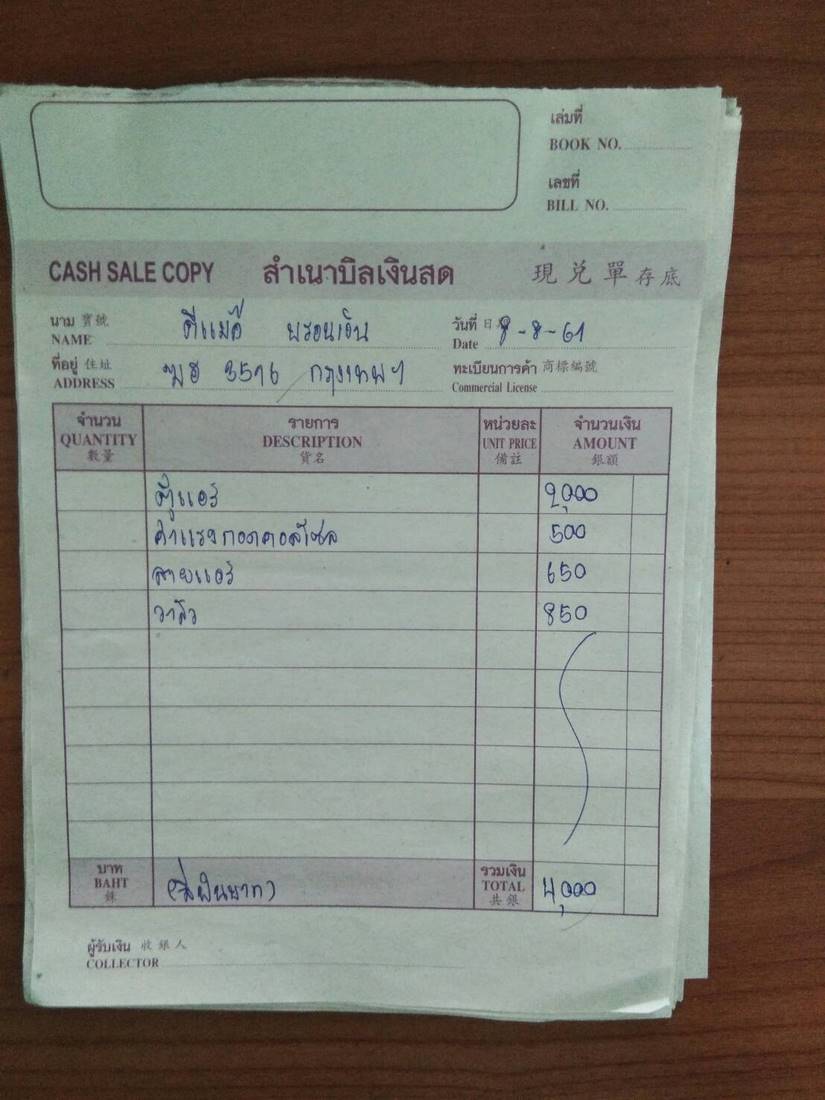 เล่มที่
BOOK NO.
เลขที่
BILL NO.
CASH SALE COPY สำเนาบิลเงินสด 現兌單存底
นาม 寶號
NAME
วันที่ 日
Date 9-8-61
ที่อยู่ 住址
ADDRESS 3516 กรุงเทพฯ
ทะเบียนการค้า 商標編號
Commercial License
จำนวน รายการ หน่วยละ จำนวนเงิน
QUANTITY DESCRIPTION UNIT PRICE AMOUNT
數量 貨名 備註 銀額
ตู้แอร์ 2,000
500
สายแอร์ 650
วาล์ว 850
บาท รวมเงิน
BAHT (สี่พันบาท) TOTAL 4,000
銖 共銀
ผู้รับเงิน 收銀人
COLLECTOR